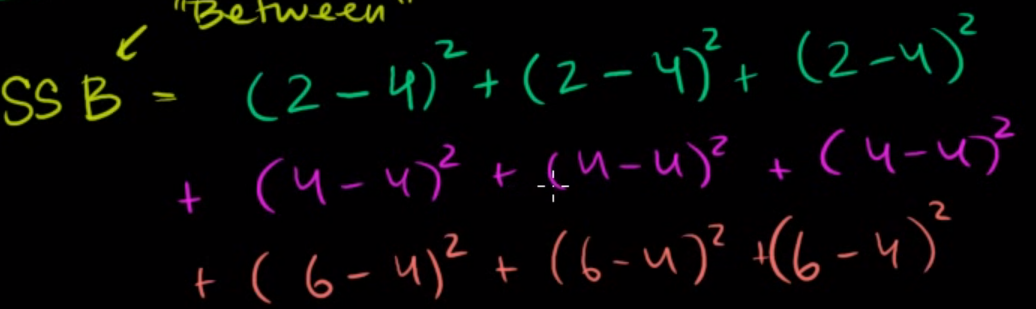 "Between"
SSB = (2-4)² + (2-4)² + (2-4)²
+ (4-4)² + (4-4)² + (4-4)²
+ (6-4)² + (6-4)² + (6-4)²